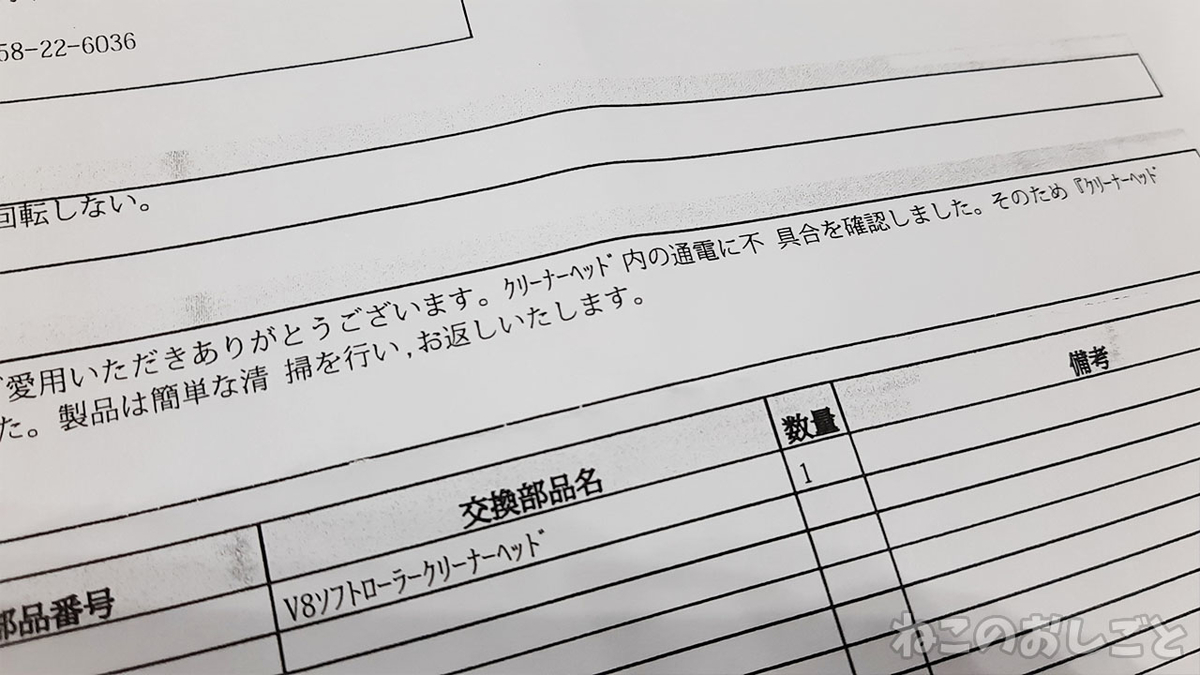 58-22-6036
回転しない。
愛用いただきありがとうございます。ｸﾘｰﾅｰﾍｯﾄﾞ内の通電に不 具合を確認しました。そのため『ｸﾘｰﾅｰﾍｯﾄﾞ
た。製品は簡単な清 掃を行い,お返しいたします。
部品番号 交換部品名 数量 備考
V8ソフトローラークリーナーヘッド 1
ねこのおしごと